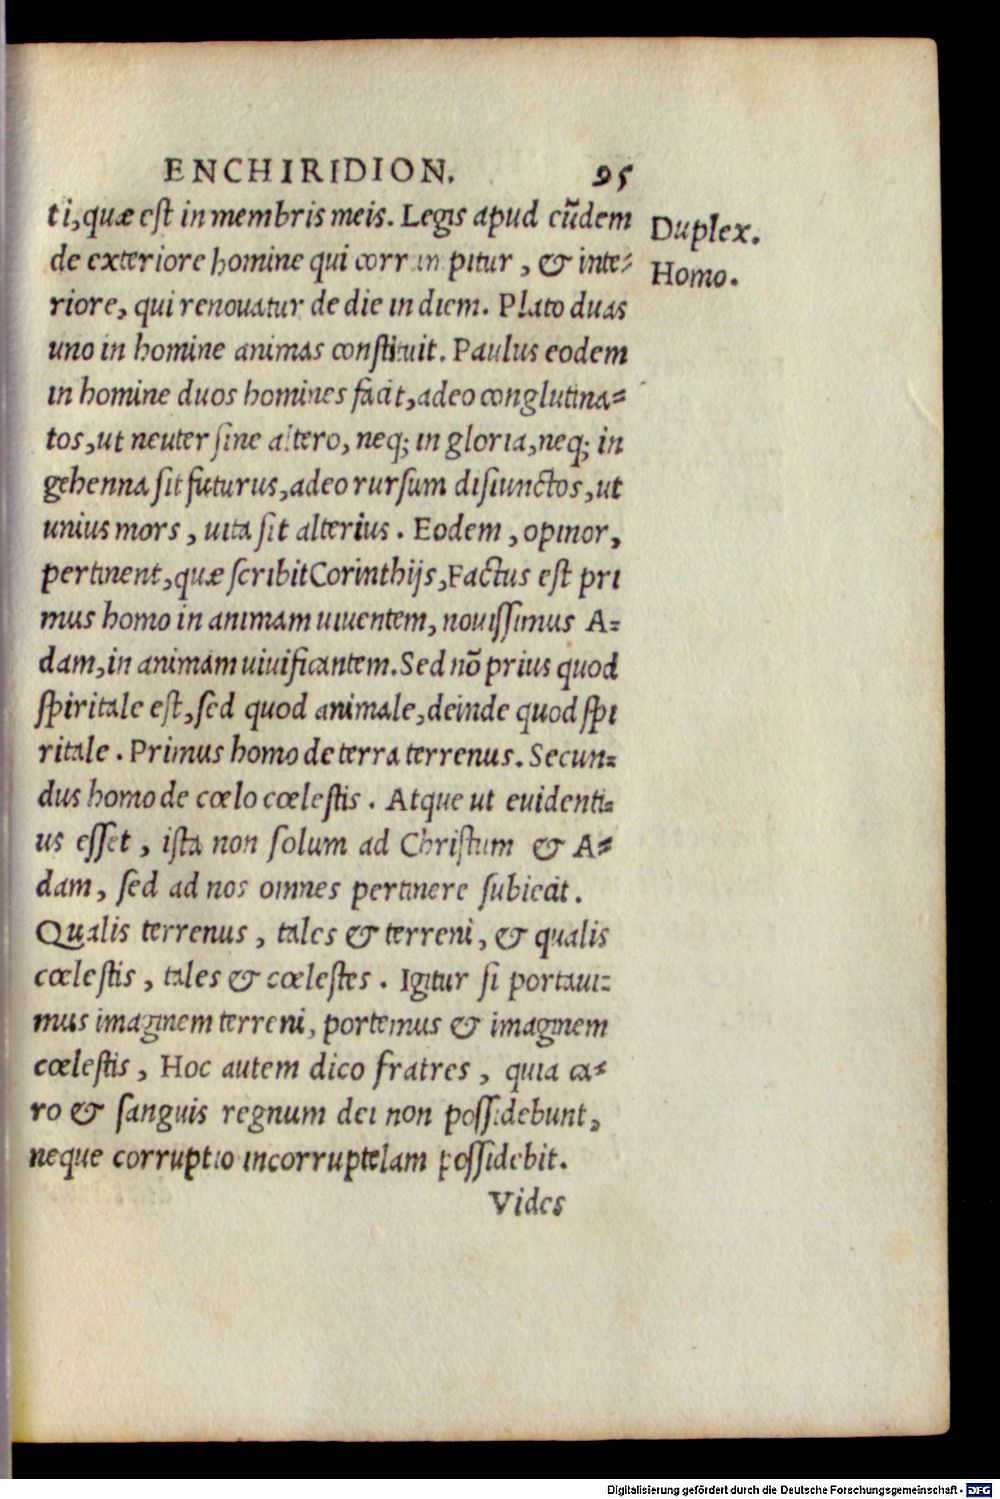 ENCHIRIDION. 95
ti, quæ est in membris meis. Legis apud eūdem
Duplex.
de exteriore homine qui corrumpitur, & inte-
Homo.
riore, qui renouatur de die in diem. Plato duas
uno in homine animas constituit. Paulus eodem
in homine duos homines facit, adeo conglutina-
tos, ut neuter sine altero, neq; in gloria, neq; in
gehenna sit futurus, adeo rursum disiunctos, ut
unius mors, uita sit alterius. Eodem, opinor,
pertinent, quæ scribit Corinthijs, Factus est pri
mus homo in animam uiuentem, nouissimus A-
dam, in animam uiuificantem. Sed nō prius quod
spiritale est, sed quod animale, deinde quod spi
ritale. Primus homo de terra terrenus. Secun-
dus homo de cœlo cœlestis. Atque ut euidenti-
us esset, ista non solum ad Christum & A-
dam, sed ad nos omnes pertinere subiecit.
Qualis terrenus, tales & terreni, & qualis
cœlestis, tales & cœlestes. Igitur si portaui-
mus imaginem terreni, portemus & imaginem
cœlestis, Hoc autem dico fratres, quia ca-
ro & sanguis regnum dei non possidebunt,
neque corruptio incorruptelam possidebit.
Vides
Digitalisierung gefördert durch die Deutsche Forschungsgemeinschaft - DFG